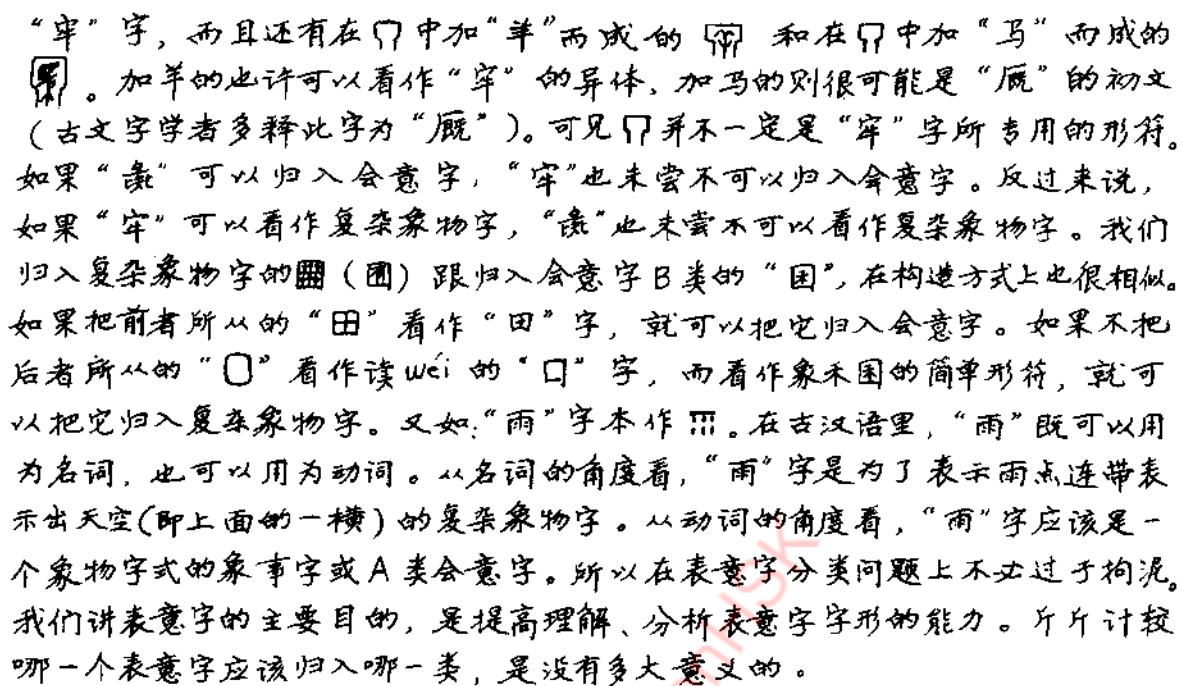 “牢”字,而且还有在中加“羊”而成的 和在中加“马”而成的
。加羊的也许可以看作“牢”的异体、加马的则很可能是“厩”的初文
(古文字学者多释此字为“厩”)。可见并不一定是“牢”字所专用的形符。
如果“彘”可以归入会意字,“牢”也未尝不可以归入会意字。反过来说,
如果“牢”可以看作复杂象物字,“彘”也未尝不可以看作复杂象物字。我们
归入复杂象物字的(囿)跟归入会意字B类的“困”,在构造方式上也很相似。
如果把前者所从的“田”看作“田”字,就可以把它归入会意字。如果不把
后者所从的“囗”看作读wéi的“囗”字,而看作象禾囷的简单形符,就可
以把它归入复杂象物字。又如:“雨”字本作。在古汉语里,“雨”既可以用
为名词,也可以用为动词。从名词的角度看,“雨”字是为了表示雨点连带表
示出天空(即上面的一横)的复杂象物字。从动词的角度看,“雨”字应该是一
个象物字式的象事字或A类会意字。所以在表意字分类问题上不必过于拘泥。
我们讲表意字的主要目的,是提高理解、分析表意字字形的能力。斤斤计较
哪一个表意字应该归入哪一类,是没有多大意义的。